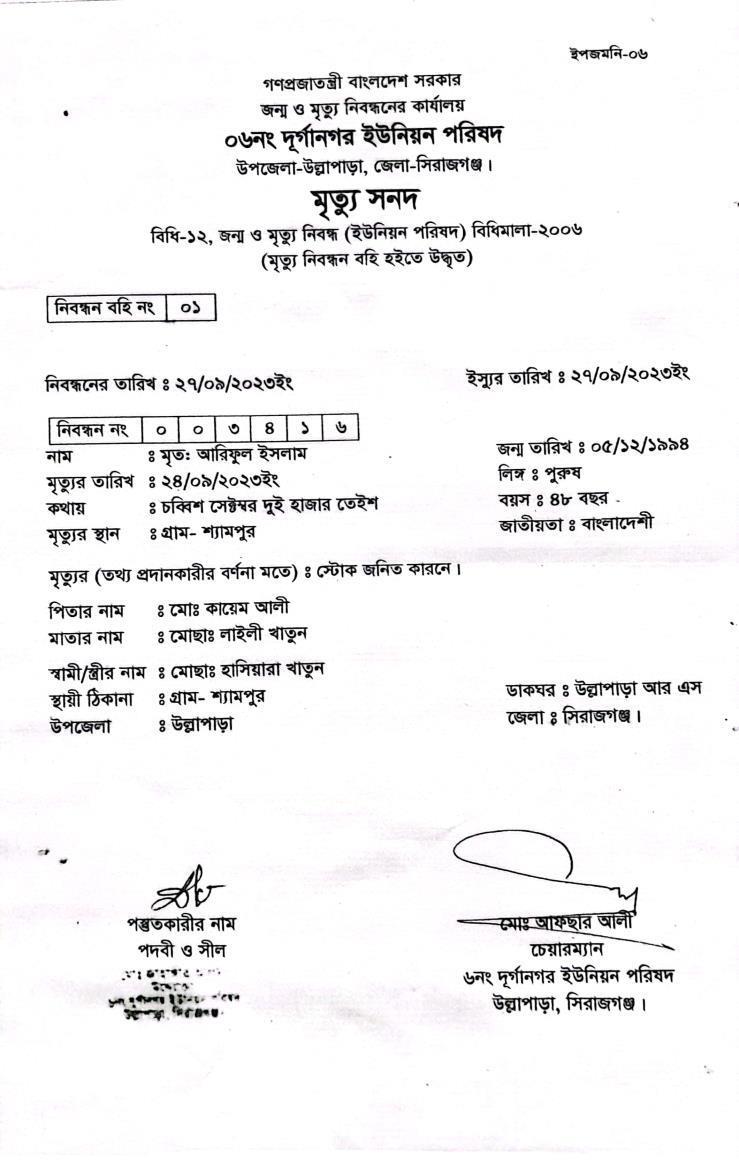 ইপজমনি-০৬
গণপ্রজাতন্ত্রী বাংলাদেশ সরকার
জন্ম ও মৃত্যু নিবন্ধনের কার্যালয়
০৬নং দূর্গানগর ইউনিয়ন পরিষদ
উপজেলা-উল্লাপাড়া, জেলা-সিরাজগঞ্জ।
মৃত্যু সনদ
বিধি-১২, জন্ম ও মৃত্যু নিবন্ধ (ইউনিয়ন পরিষদ) বিধিমালা-২০০৬
(মৃত্যু নিবন্ধন বহি হইতে উদ্ধৃত)
নিবন্ধন বহি নং ০১
নিবন্ধনের তারিখ ঃ ২৭/০৯/২০২৩ইং ইস্যুর তারিখ ঃ ২৭/০৯/২০২৩ইং
নিবন্ধন নং ০ ০ ৩ ৪ ১ ৬
নাম ঃ মৃত: আরিফুল ইসলাম জন্ম তারিখ ঃ ০৫/১২/১৯৯৪
মৃত্যুর তারিখ ঃ ২৪/০৯/২০২৩ইং লিঙ্গ ঃ পুরুষ
কথায় ঃ চব্বিশ সেপ্টেম্বর দুই হাজার তেইশ বয়স ঃ ৪৮ বছর
মৃত্যুর স্থান ঃ গ্রাম- শ্যামপুর জাতীয়তা ঃ বাংলাদেশী
মৃত্যুর (তথ্য প্রদানকারীর বর্ণনা মতে) ঃ স্টোক জনিত কারনে।
পিতার নাম ঃ মোঃ কায়েম আলী
মাতার নাম ঃ মোছাঃ লাইলী খাতুন
স্বামী/স্ত্রীর নাম ঃ মোছাঃ হাসিয়ারা খাতুন
স্থায়ী ঠিকানা ঃ গ্রাম- শ্যামপুর ডাকঘর ঃ উল্লাপাড়া আর এস
উপজেলা ঃ উল্লাপাড়া জেলা ঃ সিরাজগঞ্জ।
পস্তুতকারীর নাম মোঃ আফছার আলী
পদবী ও সীল চেয়ারম্যান
৬নং দূর্গানগর ইউনিয়ন পরিষদ
উল্লাপাড়া, সিরাজগঞ্জ।